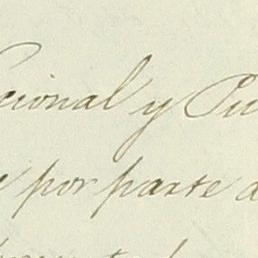 cional y Pu
e por parte d